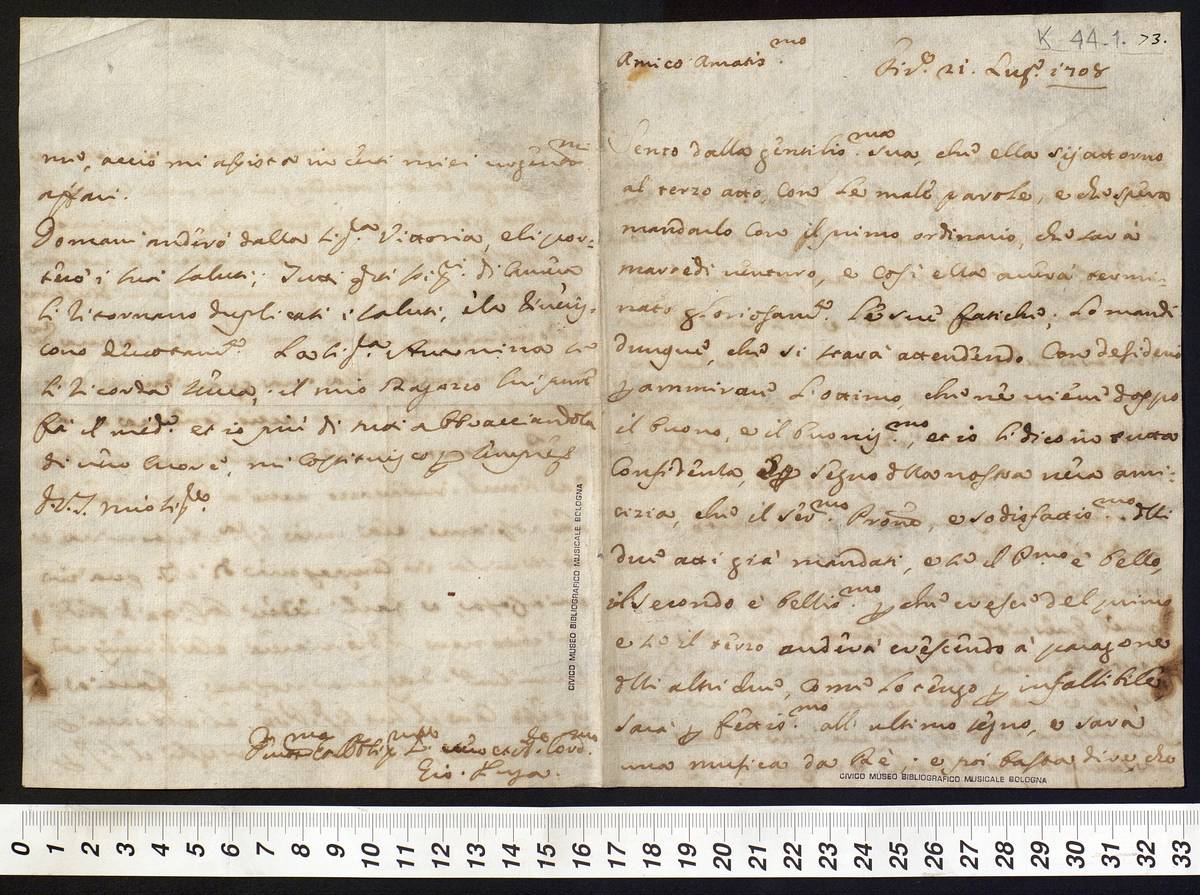 K 44.1. 73.
Amico Amatis.mo
Fir.e 21. Lug.o 1708
Sento dalla gentilis.ma sua, che ella sij attorno
al terzo atto, con le male parole, e che spera
mandarlo con il primo ordinario, che sarà
martedi venturo, e così ella averà termi-
nato gloriosam.te le sue fatiche; lo mandi
dunque, che si starà attendendo con desiderio
p ammirare l'ottimo, che ne viene doppo
il buono, e il buonis.mo, et io li dico in tutta
confidenza, p segno della nostra vera ami-
cizia, che il Ser.mo Prone, e sodisfattis.mo delli
due atti già mandati, e se il P.mo è bello,
il secondo è bellis.mo p che cresce del primo
e se il terzo anderà crescendo à paragone
delli altri due, come lo tengo p infallibile,
sarà p fettis.mo all ultimo segno, e sarà
una musica da Rè; e poi basta dire che
me, acciò mi assista in certi miei urgen.mi
affari.
Domani anderò dalla Sig.ra Vittoria, e li por-
terò i suoi saluti; Tutti
li ritornano duplicati i saluti, e la river-
cono devotam.te La Sig.ra Anna Nina se
li ricorda serva, il mio Ragazzo lui pure
fà il med.o et io più di tutti abbracciandola
di vero cuore, mi costituisco p sempre
di V.S. mio Sig.re
Gio. Fuga.
CIVICO MUSEO BIBLIOGRAFICO MUSICALE BOLOGNA
CIVICO MUSEO BIBLIOGRAFICO MUSICALE BOLOGNA
0 1 2 3 4 5 6 7 8 9 10 11 12 13 14 15 16 17 18 19 20 21 22 23 24 25 26 27 28 29 30 31 32 33